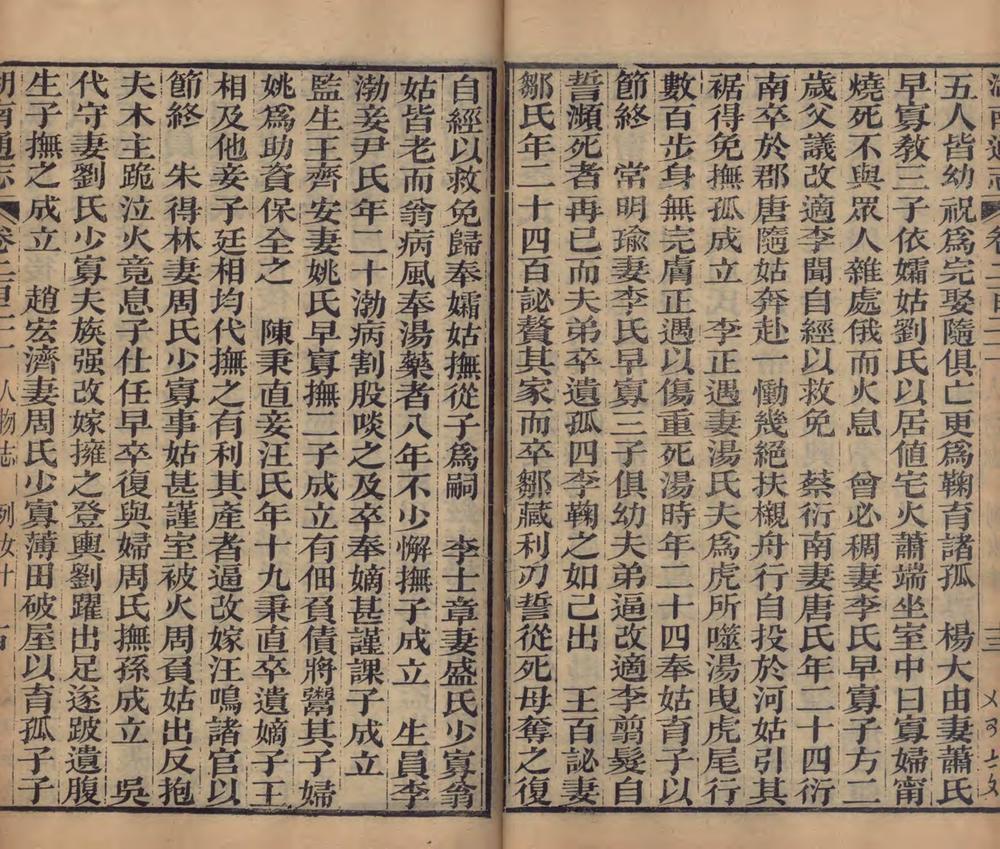 五人皆幼祝爲完娶隨俱亡更爲鞠育諸孤　楊大由妻蕭氏
早寡教三子依孀姑劉氏以居値宅火蕭端坐室中曰寡婦甯
燒死不與眾人雜處俄而火息　曾必稠妻李氏早寡子方二
歲父議改適李聞自經以救免　蔡衍南妻唐氏年二十四衍
南卒於郡唐隨姑奔赴一慟幾絕扶櫬舟行自投於河姑引其
裾得免撫孤成立　李正遇妻湯氏夫爲虎所噬湯曳虎尾行
數百步身無完膚正遇以傷重死湯時年二十四奉姑育子以
節終　常明瑜妻李氏早寡三子俱幼夫弟逼改適李剪髮自
誓瀕死者再已而夫弟卒遺孤四李鞠之如己出　王百詠妻
鄒氏年二十四百詠贅其家而卒鄒藏利刃誓從死母奪之復
自經以救免歸奉孀姑撫從子爲嗣　李士章妻盛氏少寡翁
姑皆老而翁病風奉湯藥者八年不少懈撫子成立　生員李
渤妾尹氏年二十渤病割股啖之及卒奉嫡甚謹課子成立
監生王齊安妻姚氏早寡撫二子成立有佃負債將鬻其子婦
姚爲助資保全之　陳秉直妾汪氏年十九秉直卒遺嫡子王
相及他妾子廷相均代撫之有利其產者逼改嫁汪鳴諸官以
節終　朱得林妻周氏少寡事姑甚謹室被火周負姑出反抱
夫木主跪泣火竟息子仕任早卒復與婦周氏撫孫成立　吳
代守妻劉氏少寡夫族强改嫁擁之登輿劉躍出足遂跛遺腹
生子撫之成立　趙宏濟妻周氏少寡薄田破屋以育孤子子
湖南通志　卷二百二十一　人物志　列女十